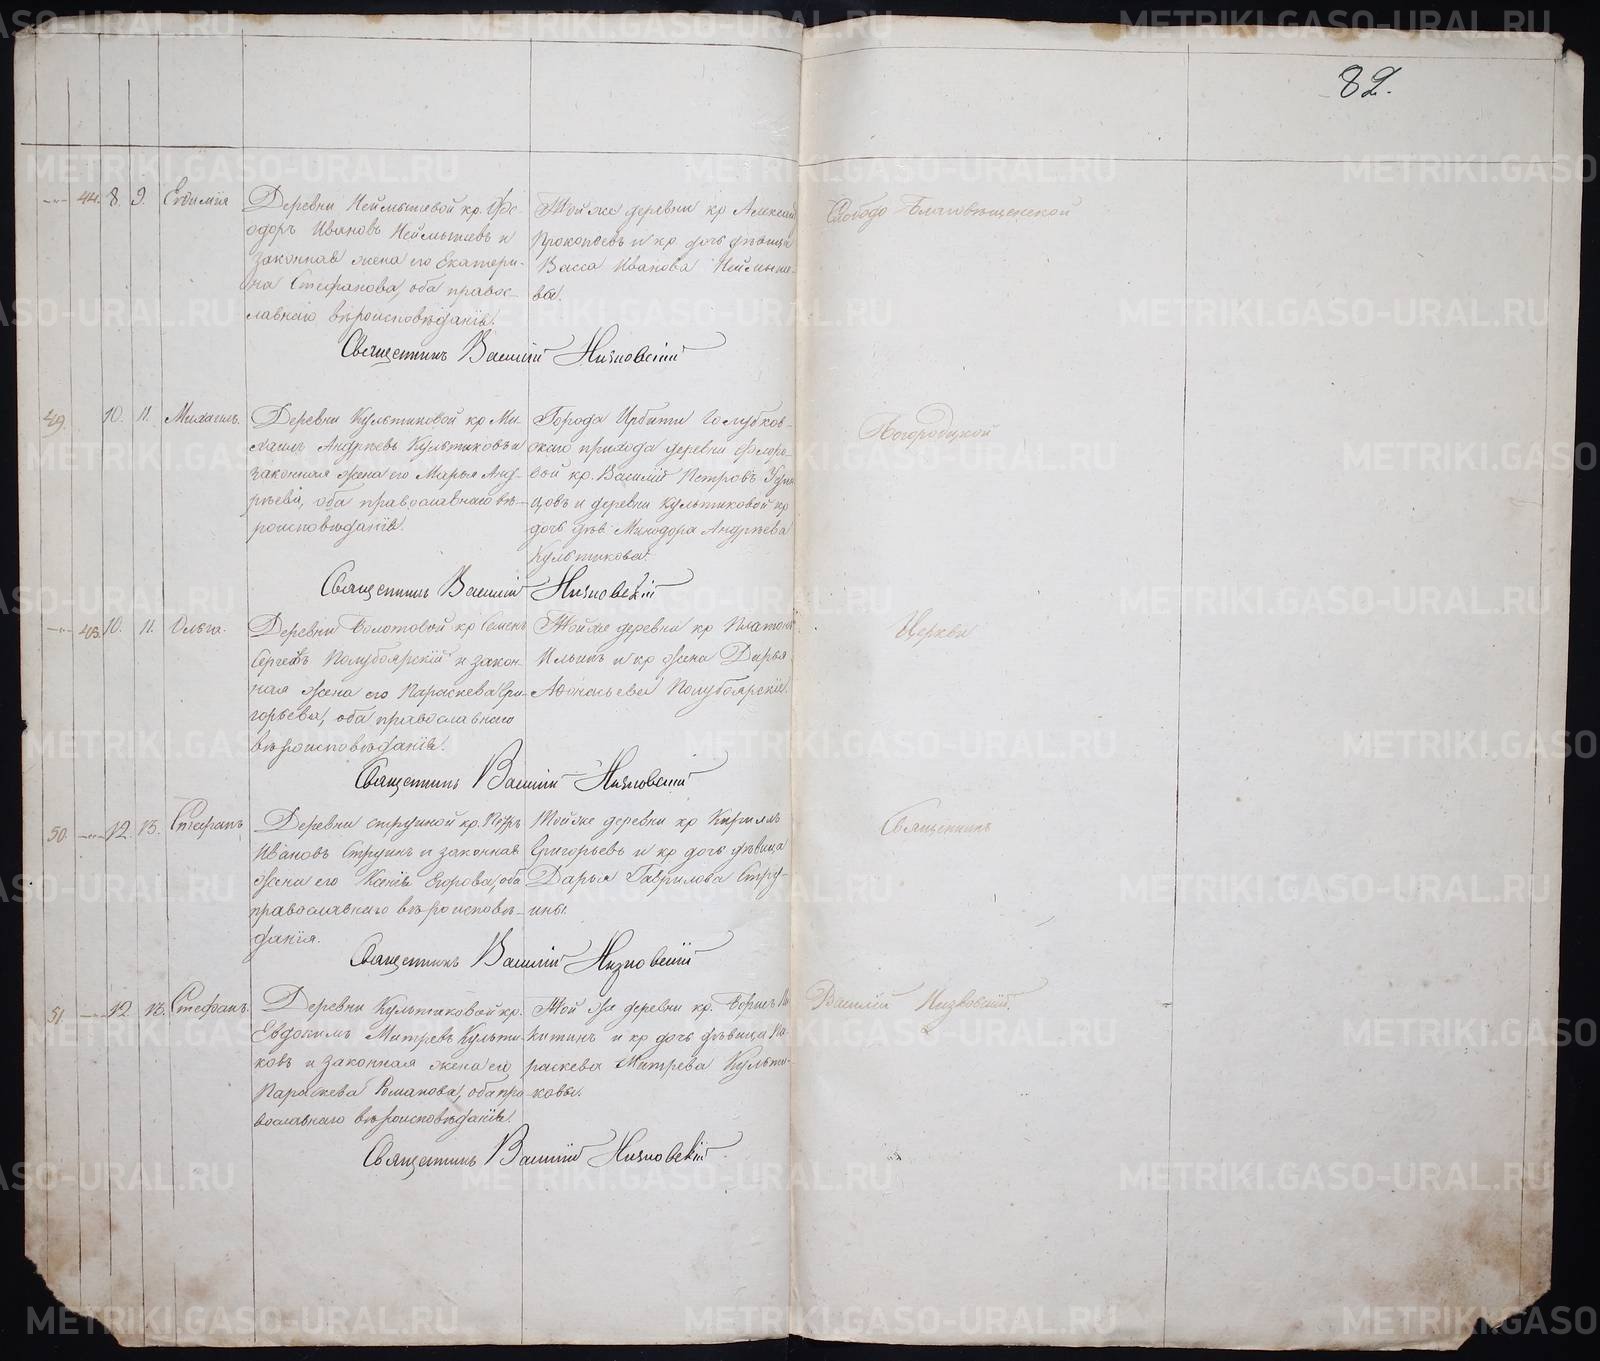 82.
44. 8. 9. Евѳимія
Деревни Неймышевой кр. Ѳе-
одоръ Ивановъ Неймышевъ и
законная жена его Екатери-
на Стефанова, оба правос-
лавнаго вѣроисповѣданія.
Той же деревни кр Алексѣй
Прокопьевъ и кр. дочь дѣвица
Васса Иванова Неймыше-
вы.
Священникъ Василій Низковскій
49. 10. 11. Михаилъ.
Деревни Культиковой кр Ми-
хаилъ Андрѣевъ Культиковъ и
законная жена его Марья Анд-
рѣева, оба православнаго вѣ-
роисповѣданія.
Города Ирбити Голубков-
скаго прихода деревни
кр. Василій Петровъ
и деревни Культиковой кр
дочь дѣв. Минодора Андрѣева
Культикова.
Священникъ Василій Низковскій
43. 10. 11. Ольга.
Деревни Болотовой кр Семенъ
Сергѣевъ Полубоярскій и закон-
ная жена его Параскева Гри-
горьева, оба православнаго
вѣроисповѣданія.
Той же деревни кр Платонъ
Ильинъ и кр жена Дарья
Аѳонасьева Полубоярскіе.
Священникъ Василій Низковскій
50. 12. 13. Стефанъ
Деревни Струиной кр. Петръ
Ивановъ Струинъ и законная
жена его Ксенія Егорова, оба
православнаго вѣроисповѣ-
данія.
Той же деревни кр Кириллъ
Григорьевъ и кр дочь дѣвица
Дарья Гаврилова Стру-
ины.
Священникъ Василій Низковскій
51. 12. 13. Стефанъ.
Деревни Культиковой кр.
Евдокимъ Митревъ Культи-
ковъ и законная жена его
Параскева Романова, оба пра-
вославнаго вѣроисповѣданія.
Той же деревни кр. Борисъ Ни-
китинъ и кр дочь дѣвица Па-
раскева Митрева Культи-
ковы.
Священникъ Василій Низковскій
Слободо Благовѣщенской
Богородицкой
Церкви
Священникъ
Василій Низковскій.
METRIKI.GASO-URAL.RU